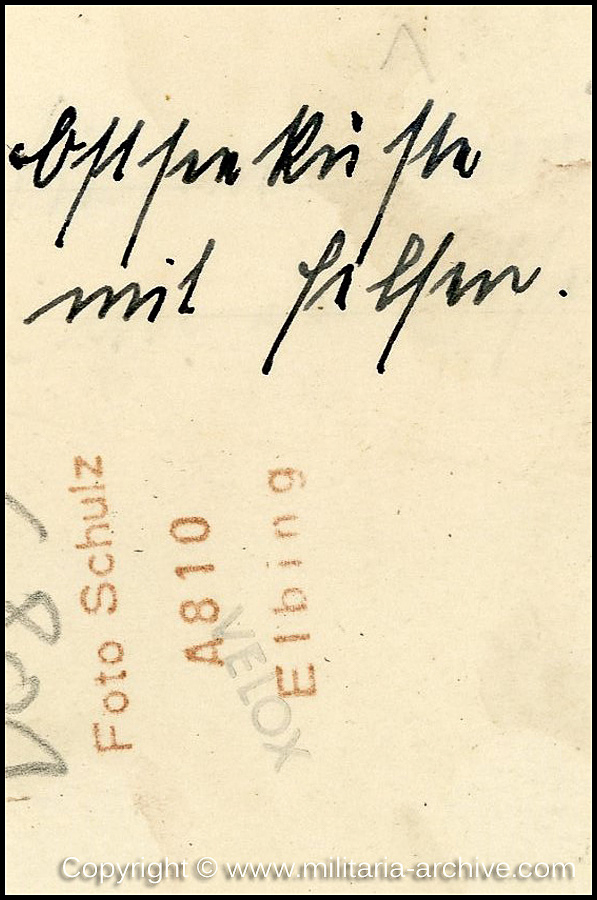 Ostseeküste
mit Felsen.
Foto Schulz
A810
Elbing
VELOX
Copyright © www.militaria-archive.com